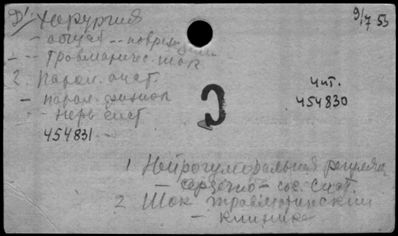 Д1. Хирургия 9/7 53
- общая -- повреждения
- -- Травматич. шок
2. Парал. сист.
- парал. физиол
- нерв. сист
454831
чит.
454830
1 Нейрогуморальная регуляц
сердечно-сос. сист.
2 Шок травматический
- клиника